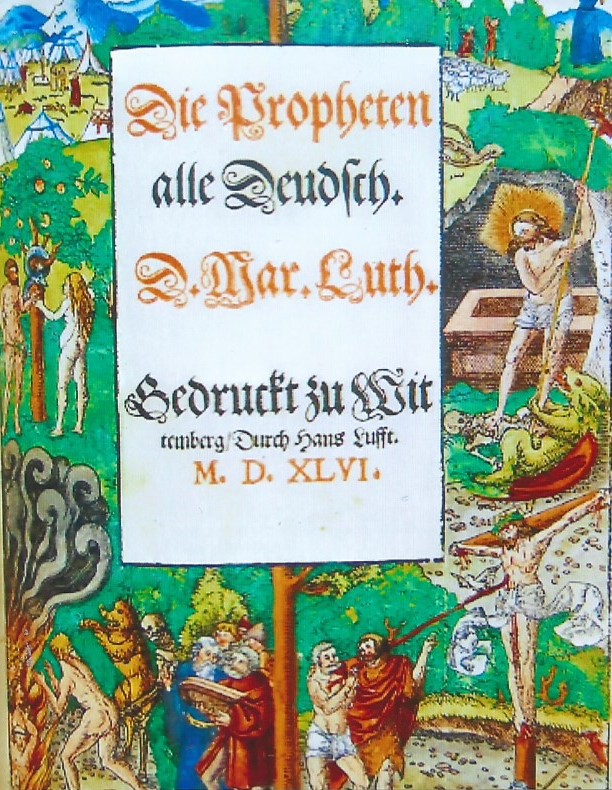 Die Propheten
alle Deudſch.
D. Mar. Luth.
Gedruckt zu Wit
temberg/ Durch Hans Lufft.
M. D. XLVI.